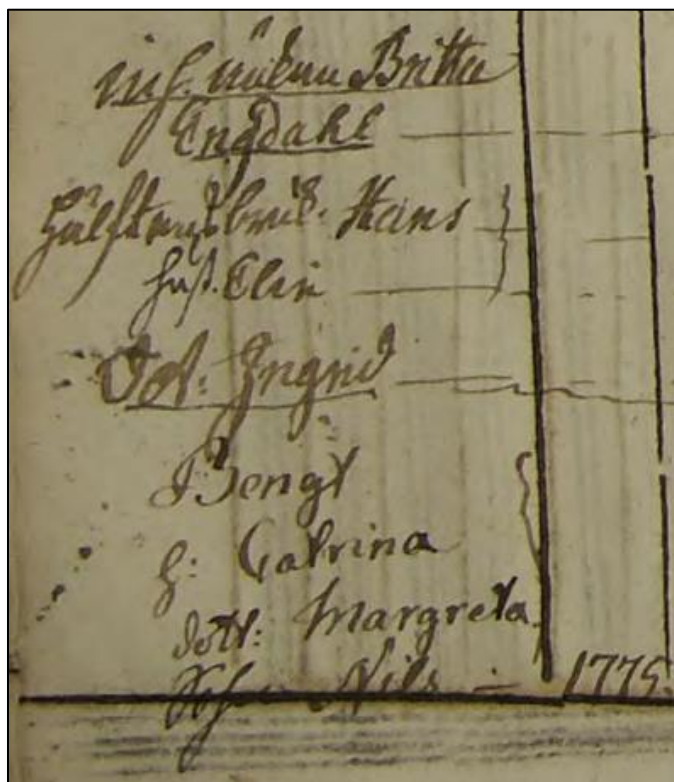 inh. änkan Britta
Engdahl
Hälftenbruk. Hans
hust. Elin
Dot: Ingrid
Bengt
h: Catrina
dott: Margreta
Nils 1775